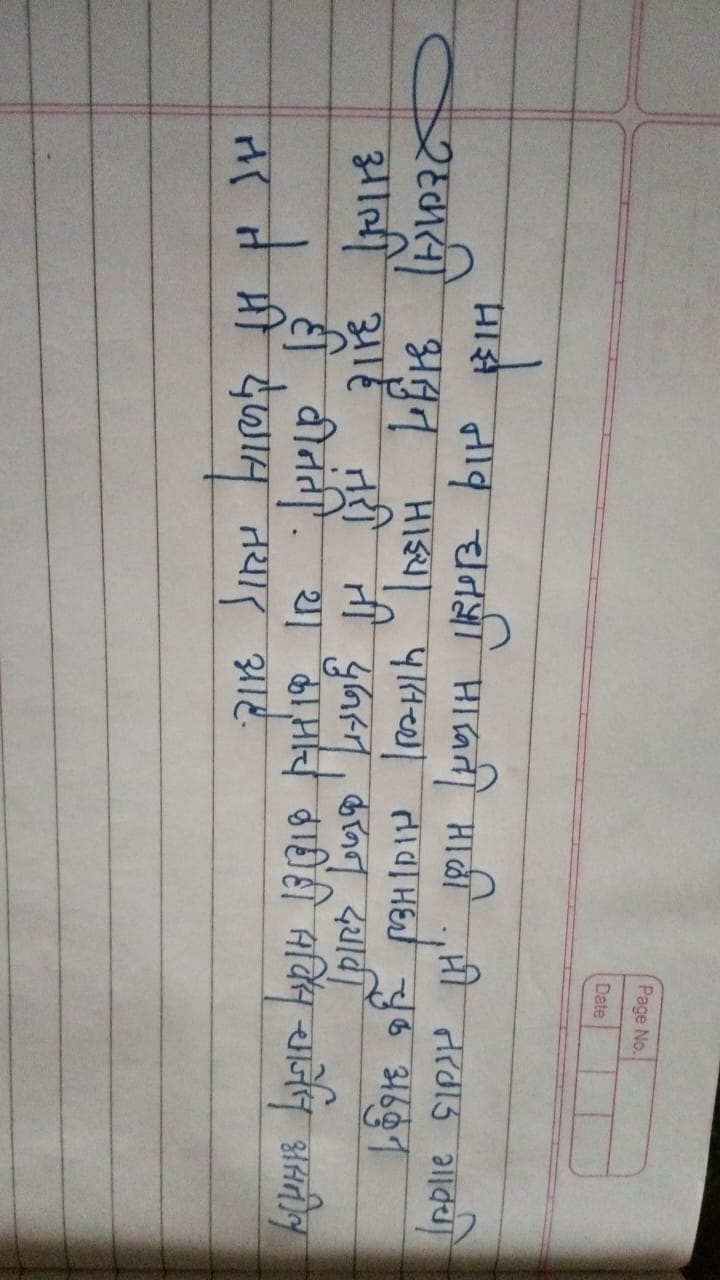 Page No.
Date
माझे नाव धनश्री मारूती माळी. मी नरवाड गावची
रहवासी असुन माझ्या पासच्या नावामध्ये चुक अढळुन
आली आहे तरी ती दुरूस्त करून दयावी
ही वीनंती. या कामाचे काहीही सर्विस चार्जेस असतील
तर ते मी देण्यास तयार आहे.